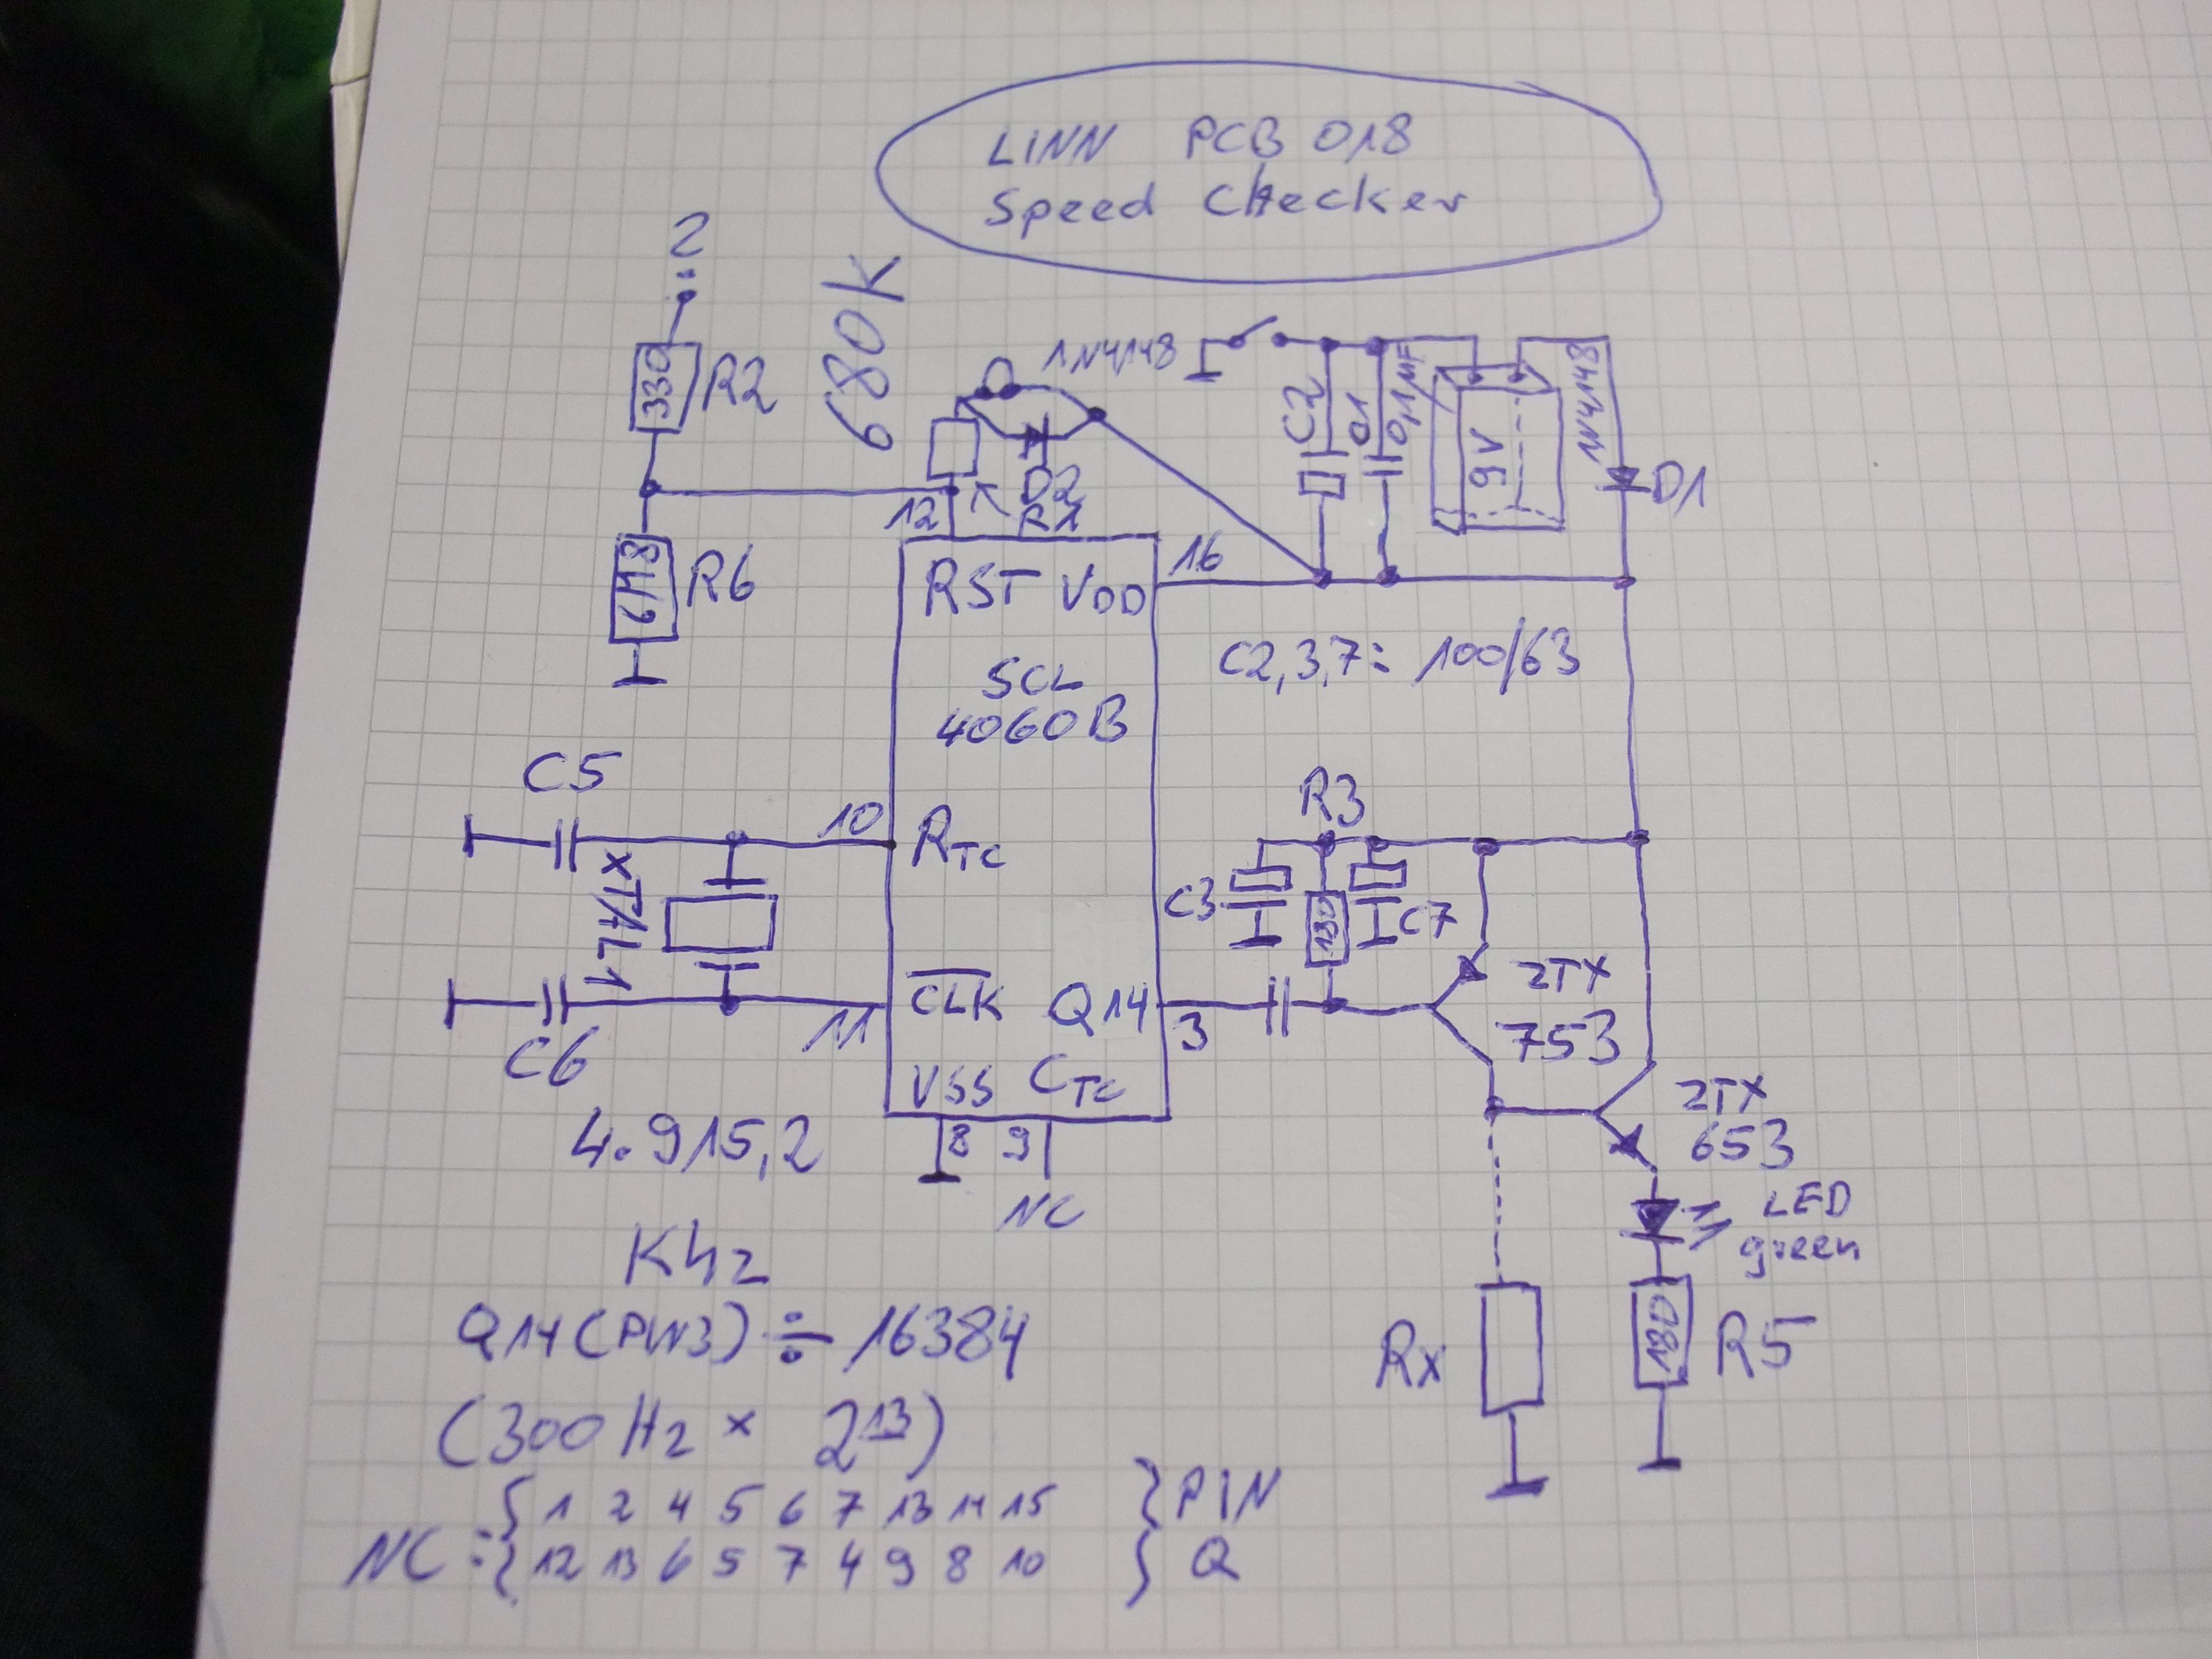 LINN PCB 018
Speed Checker
2
330
R2
680K
1N4148
C2
0.1
0,1µF
9V
1N4148
D1
12
D2
R1
6M8
R6
RST VDD
16
SCL
4060B
C2,3,7: 100/63
C5
10
RTC
XTAL1
R3
C3
180
C7
CLK Q14
11
3
C6
VSS CTC
8 9
NC
2TX
753
2TX
653
LED
green
4.915,2
KHz
Q14 (PIN3) ÷ 16384
(300 Hz × 2^13)
Rx
180
R5
NC = { 1 2 4 5 6 7 13 14 15 } PIN
{ 12 13 6 5 7 4 9 8 10 } Q